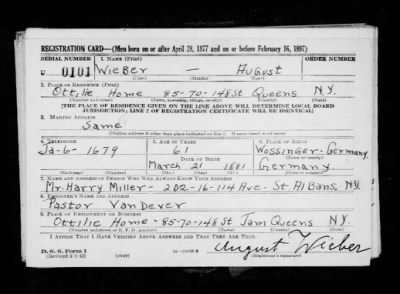 REGISTRATION CARD—(Men born on or after April 28, 1877 and on or before February 16, 1897)
SERIAL NUMBER 1. NAME (Print) ORDER NUMBER
U 0101 Wieber — August
(First) (Middle) (Last)
2. PLACE OF RESIDENCE (Print)
Ottilie Home 85-70-148 St Queens N.Y.
(Number and street) (Town, township, village, or city) (County) (State)
[THE PLACE OF RESIDENCE GIVEN ON THE LINE ABOVE WILL DETERMINE LOCAL BOARD
JURISDICTION; LINE 2 OF REGISTRATION CERTIFICATE WILL BE IDENTICAL]
3. MAILING ADDRESS
Same
[Mailing address if other than place indicated on line 2. If same insert word same]
4. TELEPHONE 5. AGE IN YEARS 6. PLACE OF BIRTH
61 Wossinger-Germany
Ja-6-1679 DATE OF BIRTH
March 21 1881 Germany
7. NAME AND ADDRESS OF PERSON WHO WILL ALWAYS KNOW YOUR ADDRESS
Mr. Harry Miller- 202-16-114 Ave- St. Albans, N.Y.
8. EMPLOYER'S NAME AND ADDRESS
Pastor Van Dever
9. PLACE OF EMPLOYMENT OR BUSINESS
Ottilie Home-85-70-148 St Jam Queens N.Y.
(Number and street or R. F. D. number) (Town) (County) (State)
I AFFIRM THAT I HAVE VERIFIED ABOVE ANSWERS AND THAT THEY ARE TRUE.
D. S. S. Form 1
August Wieber